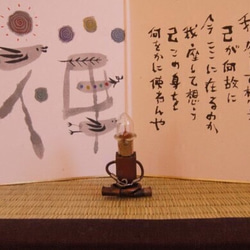 己が何故に
今ここに在るのか
我座して想う
己この身を
何をかに使わんや